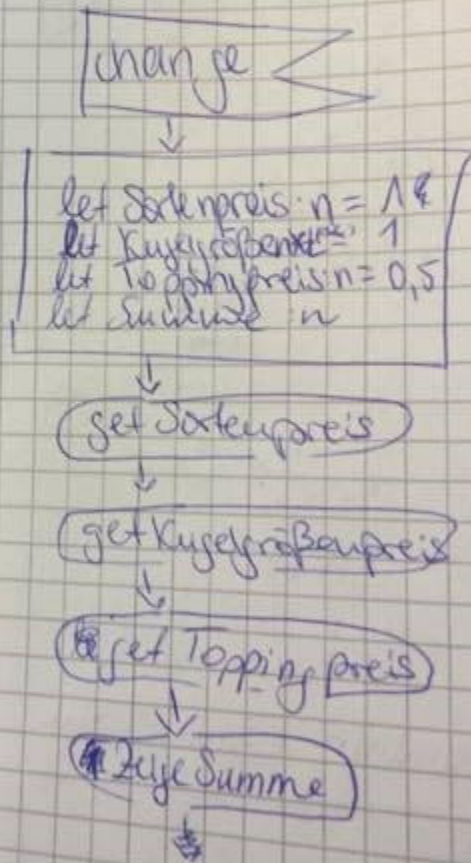 change
let Sortenpreis: n = 1€
let Kugelgrößen = 1
let Toppingpreis: n = 0,5
let Summe : n
get Sortenpreis
get Kugelgrößenpreis
get Toppingpreis
Zeige Summe